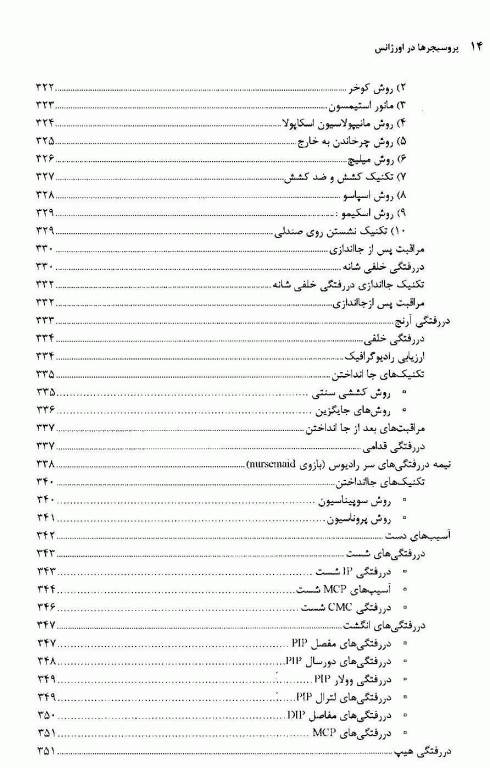 ۱۴ پروسیجرها در اورژانس
۲) روش کوخر ۳۲۲
۳) مانور استیمسون ۳۲۳
۴) روش مانیپولاسیون اسکاپولا ۳۲۴
۵) روش چرخاندن به خارج ۳۲۵
۶) روش میلیچ ۳۲۶
۷) تکنیک کشش و ضد کشش ۳۲۷
۸) روش اسپاسو ۳۲۸
۹) روش اسکیمو : ۳۲۹
۱۰) تکنیک نشستن روی صندلی ۳۲۹
مراقبت پس از جااندازی ۳۳۰
دررفتگی خلفی شانه ۳۳۰
تکنیک جااندازی دررفتگی خلفی شانه ۳۳۲
مراقبت پس ازجااندازی ۳۳۲
دررفتگی آرنج ۳۳۳
دررفتگی خلفی ۳۳۴
ارزیابی رادیوگرافیک ۳۳۴
تکنیک‌های جا انداختن ۳۳۵
▫ روش کششی سنتی ۳۳۵
▫ روش‌های جایگزین ۳۳۶
مراقبت‌های بعد از جا انداختن ۳۳۷
دررفتگی قدامی ۳۳۷
نیمه دررفتگی‌های سر رادیوس (بازوی nursemaid) ۳۳۸
تکنیک‌های جاانداختن ۳۴۰
▫ روش سوپیناسیون ۳۴۰
▫ روش پروناسیون ۳۴۱
آسیب‌های دست ۳۴۲
دررفتگی‌های شست ۳۴۳
▫ دررفتگی IP شست ۳۴۳
▫ آسیب‌های MCP شست ۳۴۴
▫ دررفتگی CMC شست ۳۴۶
دررفتگی‌های انگشت ۳۴۷
▫ دررفتگی‌های مفصل PIP ۳۴۷
▫ دررفتگی‌های دورسال PIP ۳۴۸
▫ دررفتگی وولار PIP ۳۴۹
▫ دررفتگی‌های لترال PIP ۳۴۹
▫ دررفتگی‌های مفاصل DIP ۳۵۰
▫ دررفتگی‌های MCP ۳۵۱
دررفتگی هیپ ۳۵۱